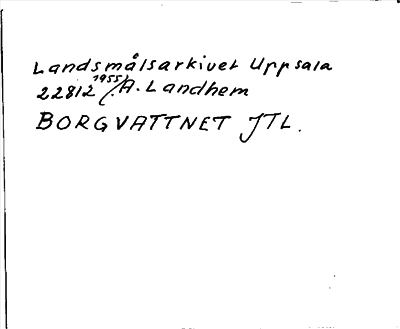 Landsmålsarkivet Uppsala
22812 1955/A. Landhem
BORGVATTNET JTL.